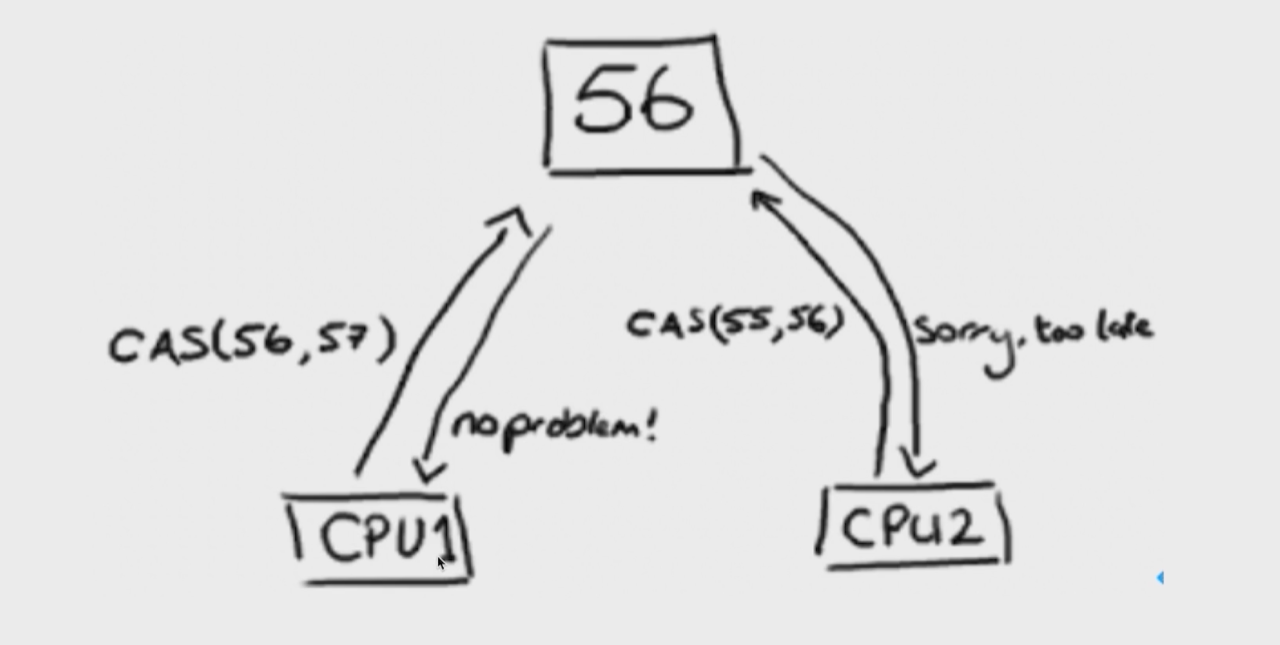 56
CAS(56,57)
no problem!
CAS(55,56)
Sorry, too late
CPU1
CPU2